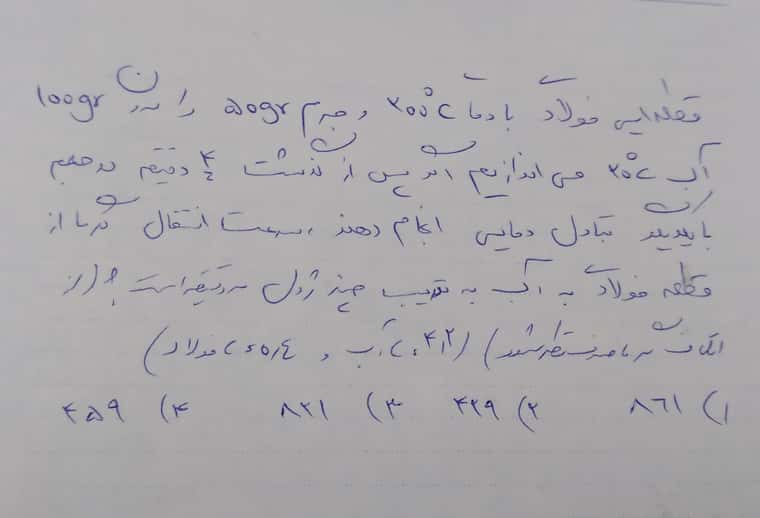 قطعه‌ایی فولاد با دمای ۲۰۰°C و جرم ۵۰gr را درون 100gr
آب ۲۰°C می اندازیم اگر پس از گذشت ۴ دقیقه هر دو جسم
با یکدیگر تبادل دمایی انجام دهند سرعت انتقال گرما از
قطعه فولاد به آب به تقریب چند ژول بر دقیقه است؟ (از
اتلاف گرما صرفنظر شود) (۴٫۲ = C آب و ۰٫۴۵ = C فولاد)
۱) ۸۶۱ ۲) ۴۲۹ ۳) ۸۲۱ ۴) ۴۵۹